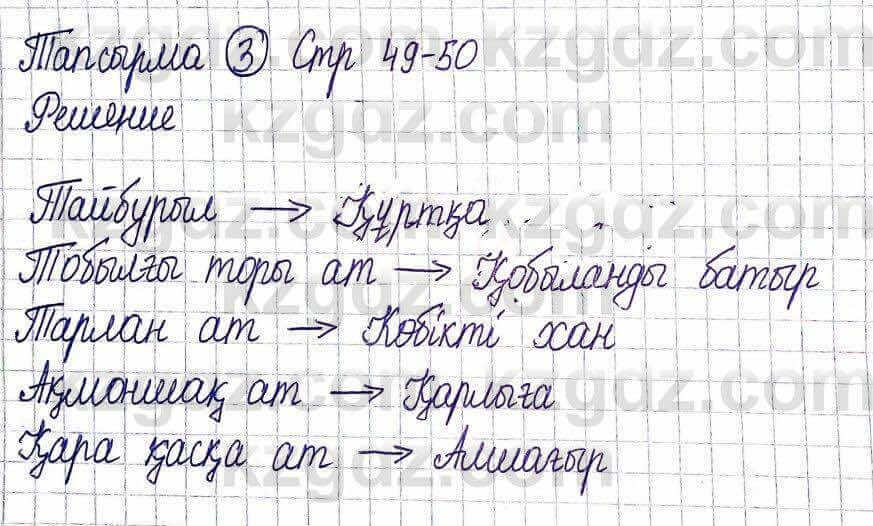 Тапсырма 3 Стр 49-50
Решение
Тайбурыл → Құртқа
Тобылғы торы ат → Қобыланды батыр
Тарлан ат → Көбікті хан
Ақмоншақ ат → Қарлыға
Қара қасқа ат → Алшағыр
kzgdz.com